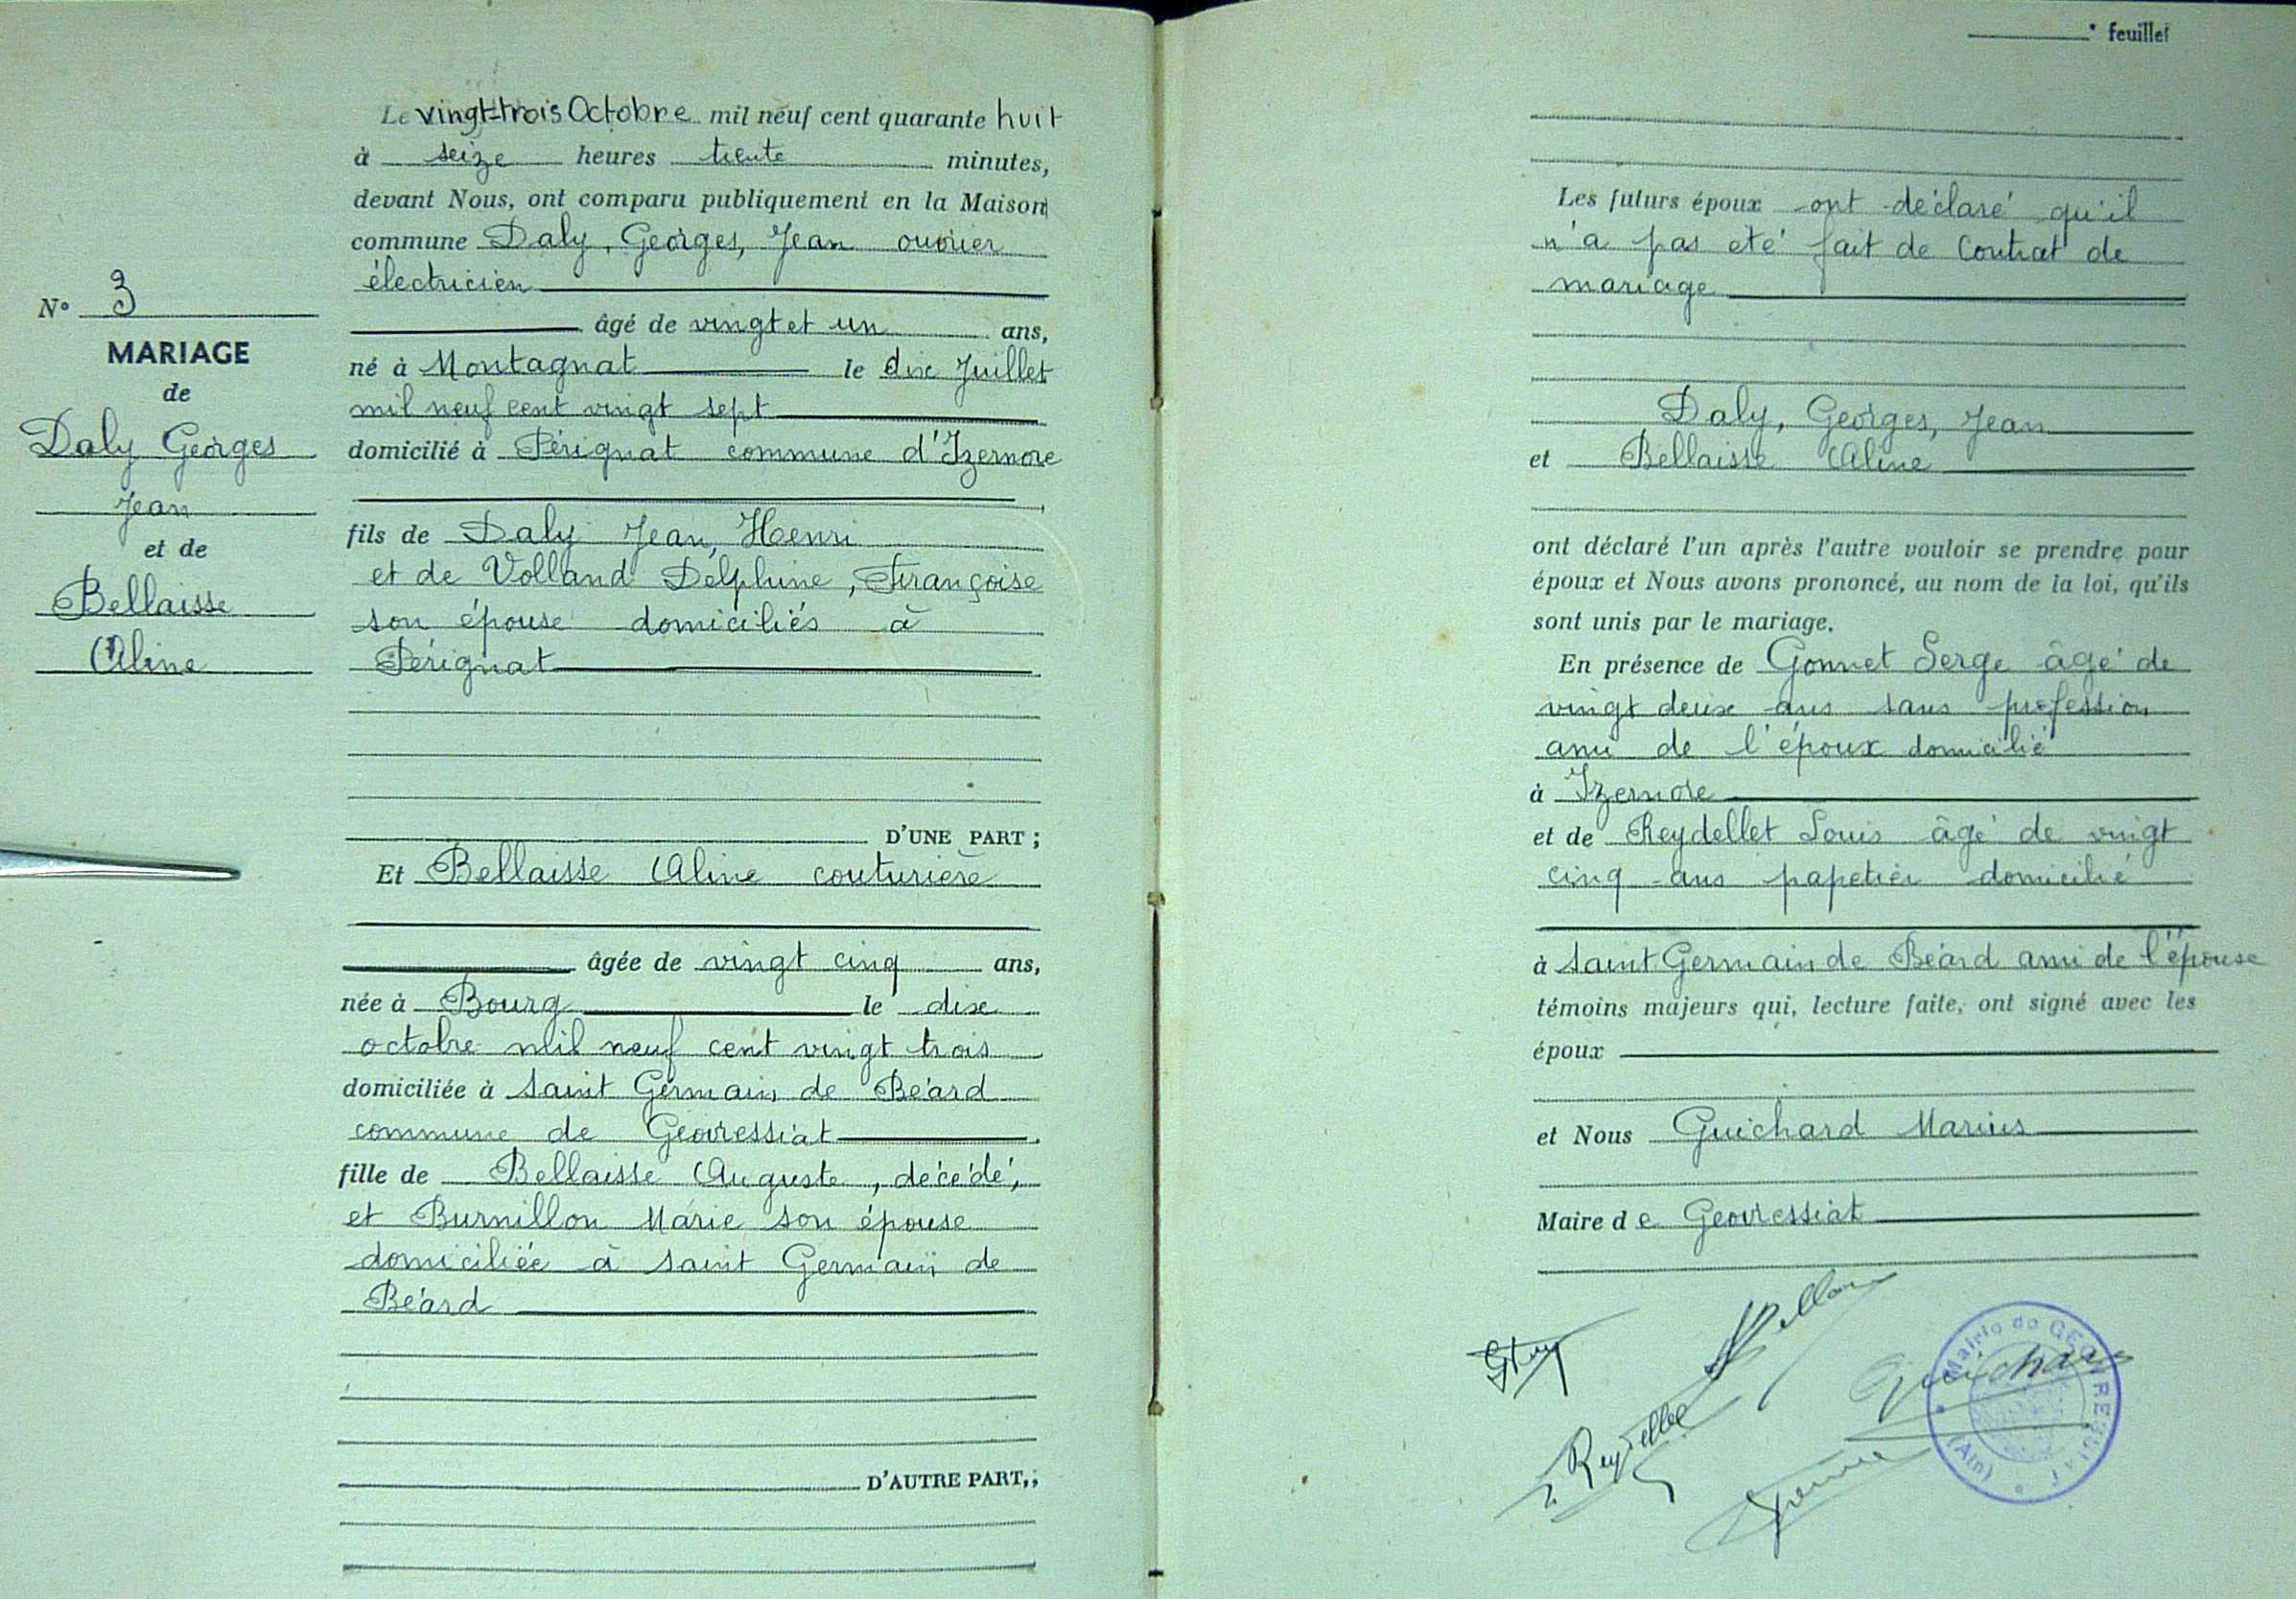 N° 3
MARIAGE
de
Daly Georges
Jean
et de
Bellaisse
Aline
Le vingt-trois Octobre mil neuf cent quarante huit
à seize heures trente minutes,
devant Nous, ont comparu publiquement en la Maison
commune Daly, Georges, Jean ouvrier
électricien
âgé de vingt et un ans,
né à Montagnat le dix Juillet
mil neuf cent vingt sept
domicilié à Pérignat commune d'Izernore
fils de Daly Jean, Henri
et de Volland Delphine, Françoise
son épouse domiciliés à
Pérignat
D'UNE PART ;
Et Bellaisse Aline couturière
âgée de vingt cinq ans,
née à Bourg le dix
octobre mil neuf cent vingt trois
domiciliée à Saint Germain de Béard
commune de Geovressiat
fille de Bellaisse Auguste, décédé,
et Burnillon Marie son épouse
domiciliée à Saint Germain de
Béard
D'AUTRE PART,;
° feuillet
Les futurs époux ont déclaré qu'il
n'a pas été fait de contrat de
mariage
Daly, Georges, Jean
et Bellaisse Aline
ont déclaré l'un après l'autre vouloir se prendre pour
époux et Nous avons prononcé, au nom de la loi, qu'ils
sont unis par le mariage.
En présence de Gonnet Serge âgé de
vingt deux ans sans profession
ami de l'époux domicilié
à Izernore
et de Reydellet Louis âgé de vingt
cinq ans papetier domicilié
à Saint Germain de Béard ami de l'épouse
témoins majeurs qui, lecture faite, ont signé avec les
époux
et Nous Guichard Marius
Maire de Geovressiat
Guichard
Mairie de GEOVRESSIAT
(Ain)